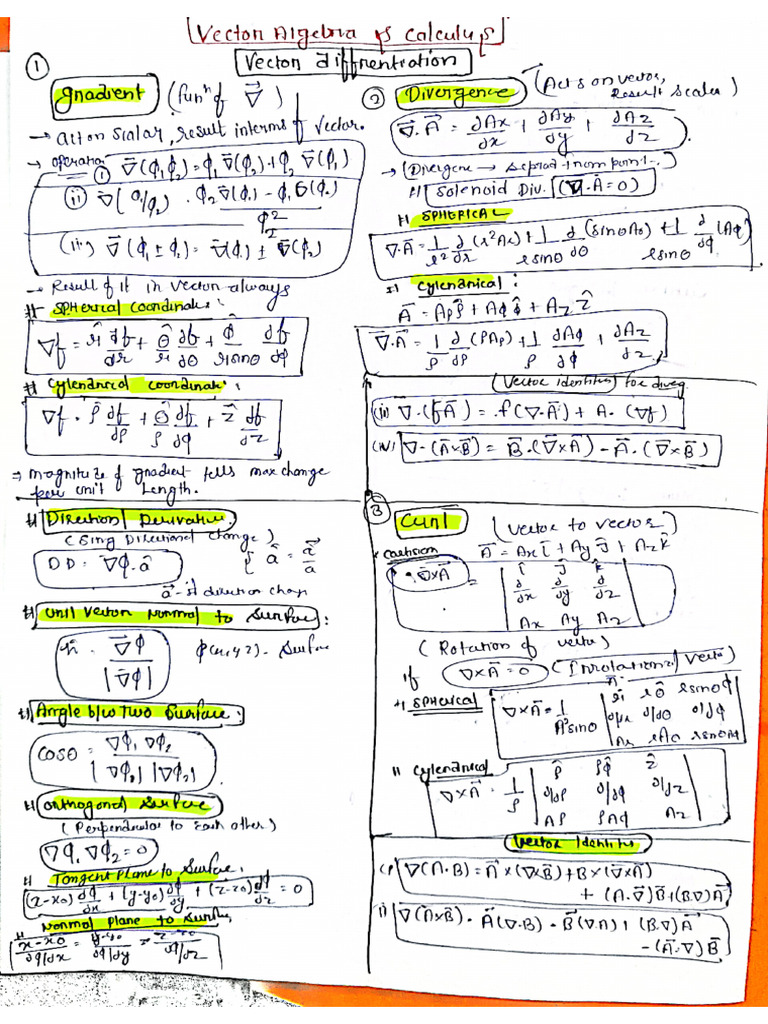 Vector Algebra & Calculus
Vector diffrentration
①
Gradient (funⁿ of ∇⃗)
→ Act on Scalar, result interms of vector.
→ operation ① ∇⃗(ϕ₁ϕ₂) = ϕ₁ ∇⃗(ϕ₂) + ϕ₂ ∇⃗(ϕ₁)
(ii) ∇⃗(ϕ₁/ϕ₂) = (ϕ₂ ∇⃗(ϕ₁) - ϕ₁ ∇⃗(ϕ₂)) / ϕ₂²
(iii) ∇⃗(ϕ₁ ± ϕ₂) = ∇⃗(ϕ₁) ± ∇⃗(ϕ₂)
→ Result of it in vector always
# Spherical coordinate:
∇f = r̂ ∂f/∂r + θ̂/r ∂f/∂θ + ϕ̂/(r sinθ) ∂f/∂ϕ
# Cylendrical coordinate:
∇f = ρ̂ ∂f/∂ρ + θ̂/ρ ∂f/∂ϕ + ẑ ∂f/∂z
⇒ magnitude of gradient tells max change
per unit Length.
# Direction Derivative.
(Sing Directional change)
DD = ∇⃗ϕ·â { â = a⃗/a
a⃗ - direction chan
# Unit Vector Normal to Surface:
n̂ = ∇⃗ϕ / |∇⃗ϕ| ϕ(x,y,z) - Surface
# Angle b/w Two Surface:
cosθ = ∇ϕ₁ ∇ϕ₂ / |∇ϕ₁| |∇ϕ₂|
# Orthogonal Surface
(Perpendicular to Each other)
∇ϕ₁ ∇ϕ₂ = 0
# Tangent Plane to Surface:
(x-x₀) ∂ϕ/∂x + (y-y₀) ∂ϕ/∂y + (z-z₀) ∂ϕ/∂z = 0
# Normal Plane to Surface
(x-x₀)/(∂ϕ/∂x) = (y-y₀)/(∂ϕ/∂y) = (z-z₀)/(∂ϕ/∂z)
② Divergence (Acts on vector,
Result Scalar)
∇⃗·A⃗ = ∂Ax/∂x + ∂Ay/∂y + ∂Az/∂z
→ (Divergene → Seprad from point..)
# Solenoid Div. (∇⃗·A⃗ = 0)
# SPHERICAL
∇·A⃗ = 1/r² ∂/∂r (r²Ar) + 1/(r sinθ) ∂/∂θ (sinθAθ) + 1/(r sinθ) ∂/∂ϕ (Aϕ)
# Cylendrical:
A⃗ = Aρ ρ̂ + Aϕ ϕ̂ + Az ẑ
∇⃗·A⃗ = 1/ρ ∂/∂ρ (ρAρ) + 1/ρ ∂Aϕ/∂ϕ + ∂Az/∂z
Vector Identities for diveg
(iii) ∇⃗·(fA⃗) = f(∇·A⃗) + A·(∇f)
(iv) ∇·(A⃗×B⃗) = B⃗·(∇⃗×A⃗) - A⃗·(∇⃗×B⃗)
③ Curl (Vector to vector)
cartision A⃗ = Ax î + Ay ĵ + Az k̂
∇⃗×A⃗ = | î ĵ k̂ |
| ∂/∂x ∂/∂y ∂/∂z |
| Ax Ay Az |
(Rotation of vector)
if ∇×A⃗ = 0 (Irrotational vector)
# SPHERICAL ∇×A⃗ = 1/(A²sinθ) | r̂ rθ̂ r sinθ ϕ̂ |
| ∂/∂r ∂/∂θ ∂/∂ϕ |
| Ar rAθ r sinθ Aϕ |
" Cylendrical
∇×A⃗ = 1/ρ | ρ̂ ρϕ̂ ẑ |
| ∂/∂ρ ∂/∂ϕ ∂/∂z |
| Aρ ρAϕ Az |
Vector Identity
(i) ∇(A·B) = A⃗×(∇×B⃗) + B×(∇×A⃗)
+ (A·∇)B⃗ + (B·∇)A⃗
ii) ∇(A×B) = A⃗(∇·B) - B⃗(∇·A) + (B·∇)A⃗
- (A⃗·∇)B⃗